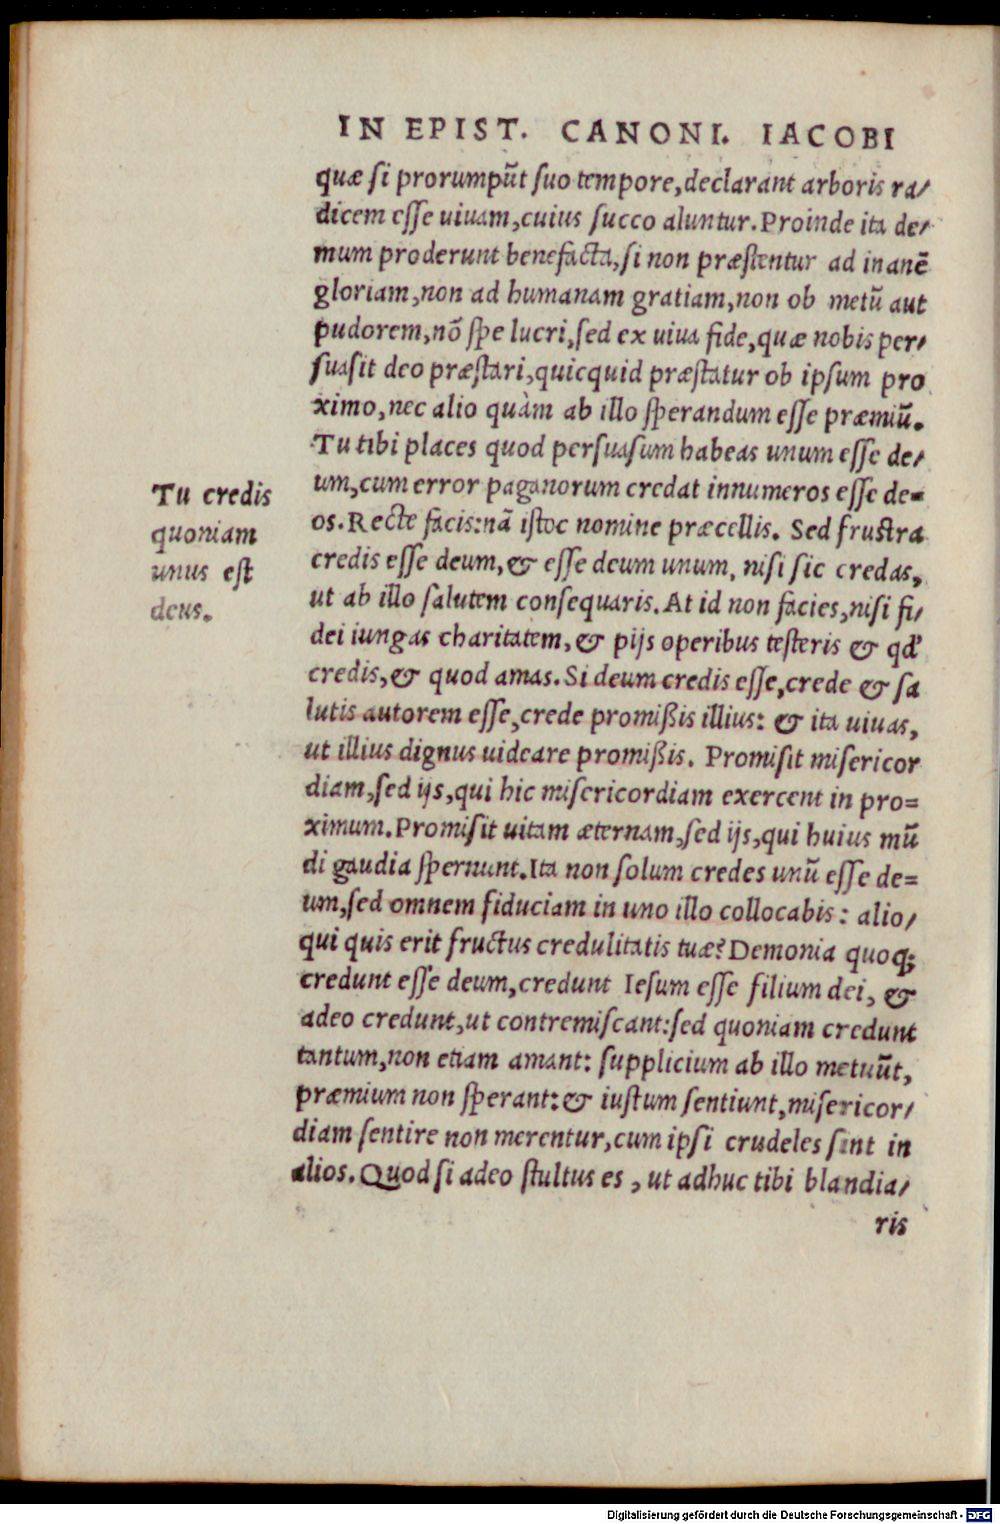 IN EPIST. CANONI. IACOBI
quæ si prorumpũt suo tempore, declarant arboris ra/
dicem esse uiuam, cuius succo aluntur. Proinde ita de/
mum proderunt benefacta, si non præstentur ad inanẽ
gloriam, non ad humanam gratiam, non ob metũ aut
pudorem, nõ spe lucri, sed ex uiua fide, quæ nobis per/
suasit deo præstari, quicquid præstatur ob ipsum pro
ximo, nec alio quàm ab illo sperandum esse præmiũ.
Tu tibi places quod persuasum habeas unum esse de/
um, cum error paganorum credat innumeros esse de=
os. Recte facis: nã istoc nomine præcellis. Sed frustra
credis esse deum, & esse deum unum, nisi sic credas,
ut ab illo salutem consequaris. At id non facies, nisi fi/
dei iungas charitatem, & pijs operibus testeris & qd'
credis, & quod amas. Si deum credis esse, crede & sa
lutis autorem esse, crede promißis illius: & ita uiuas,
ut illius dignus uideare promißis. Promisit misericor
diam, sed ijs, qui hic misericordiam exercent in pro=
ximum. Promisit uitam æternam, sed ijs, qui huius mũ
di gaudia spernunt. Ita non solum credes unũ esse de=
um, sed omnem fiduciam in uno illo collocabis: alio/
qui quis erit fructus credulitatis tuæ? Demonia quoq;
credunt esse deum, credunt Iesum esse filium dei, &
adeo credunt, ut contremiscant: sed quoniam credunt
tantum, non etiam amant: supplicium ab illo metuũt,
præmium non sperant: & iustum sentiunt, misericor/
diam sentire non merentur, cum ipsi crudeles sint in
alios. Quod si adeo stultus es, ut adhuc tibi blandia/
ris
Tu credis
quoniam
unus est
deus.
Digitalisierung gefördert durch die Deutsche Forschungsgemeinschaft - DFG